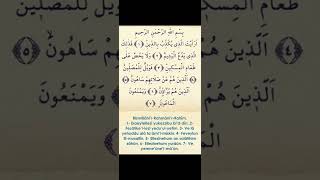 بِسْمِ اللّٰهِ الرَّحْمٰنِ الرَّحِيمِ
اَرَاَيْتَ الَّذِي يُكَذِّبُ بِالدِّينِ ﴿١﴾ فَذٰلِكَ
الَّذِي يَدُعُّ الْيَتِيمَ ﴿٢﴾ وَلَا يَحُضُّ عَلٰى
طَعَامِ الْمِسْكِينِ ﴿٣﴾ فَوَيْلٌ لِلْمُصَلِّينَ
﴿٤﴾ الَّذِينَ هُمْ عَنْ صَلَاتِهِمْ سَاهُونَ ﴿٥﴾
الَّذِينَ هُمْ يُرَاؤُنَ ﴿٦﴾ وَيَمْنَعُونَ
الْمَاعُونَ ﴿٧﴾
Bismillâhi'r-Rahmâni'r-Rahîm.
1- Eraeytellezî yukezzibu bi'd-dîn. 2-
Fezâlike'l-lezî yedu'ul-yetîm. 3- Ve lâ
yehuddu alâ ta'âmi'l-miskîn. 4- Feveylun
li'l-musallîn. 5- Ellezînehum an salâtihim
sâhûn. 6- Ellezînehum yurâûn. 7- Ve
yemne'ûne'l-mâ'ûn.